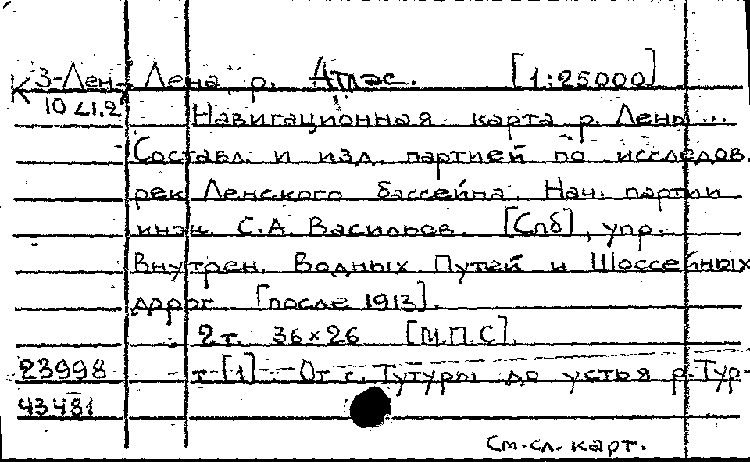 К 3-Лен. Лена, р. Атлас. [1:25000]
10 Навигационная карта р. Лены...
Составл. и изд. партией по исследов.
рек Ленского бассейна. Нач. партии
инж. С.А. Васильев. [Спб], упр.
Внутрен. Водных Путей и Шоссейных
дорог [после 1913].
2т. 36×26 [М.П.С].
23998 т.[1]. От с. Тутуры до устья р. Тур-
43481
См. сл. карт.